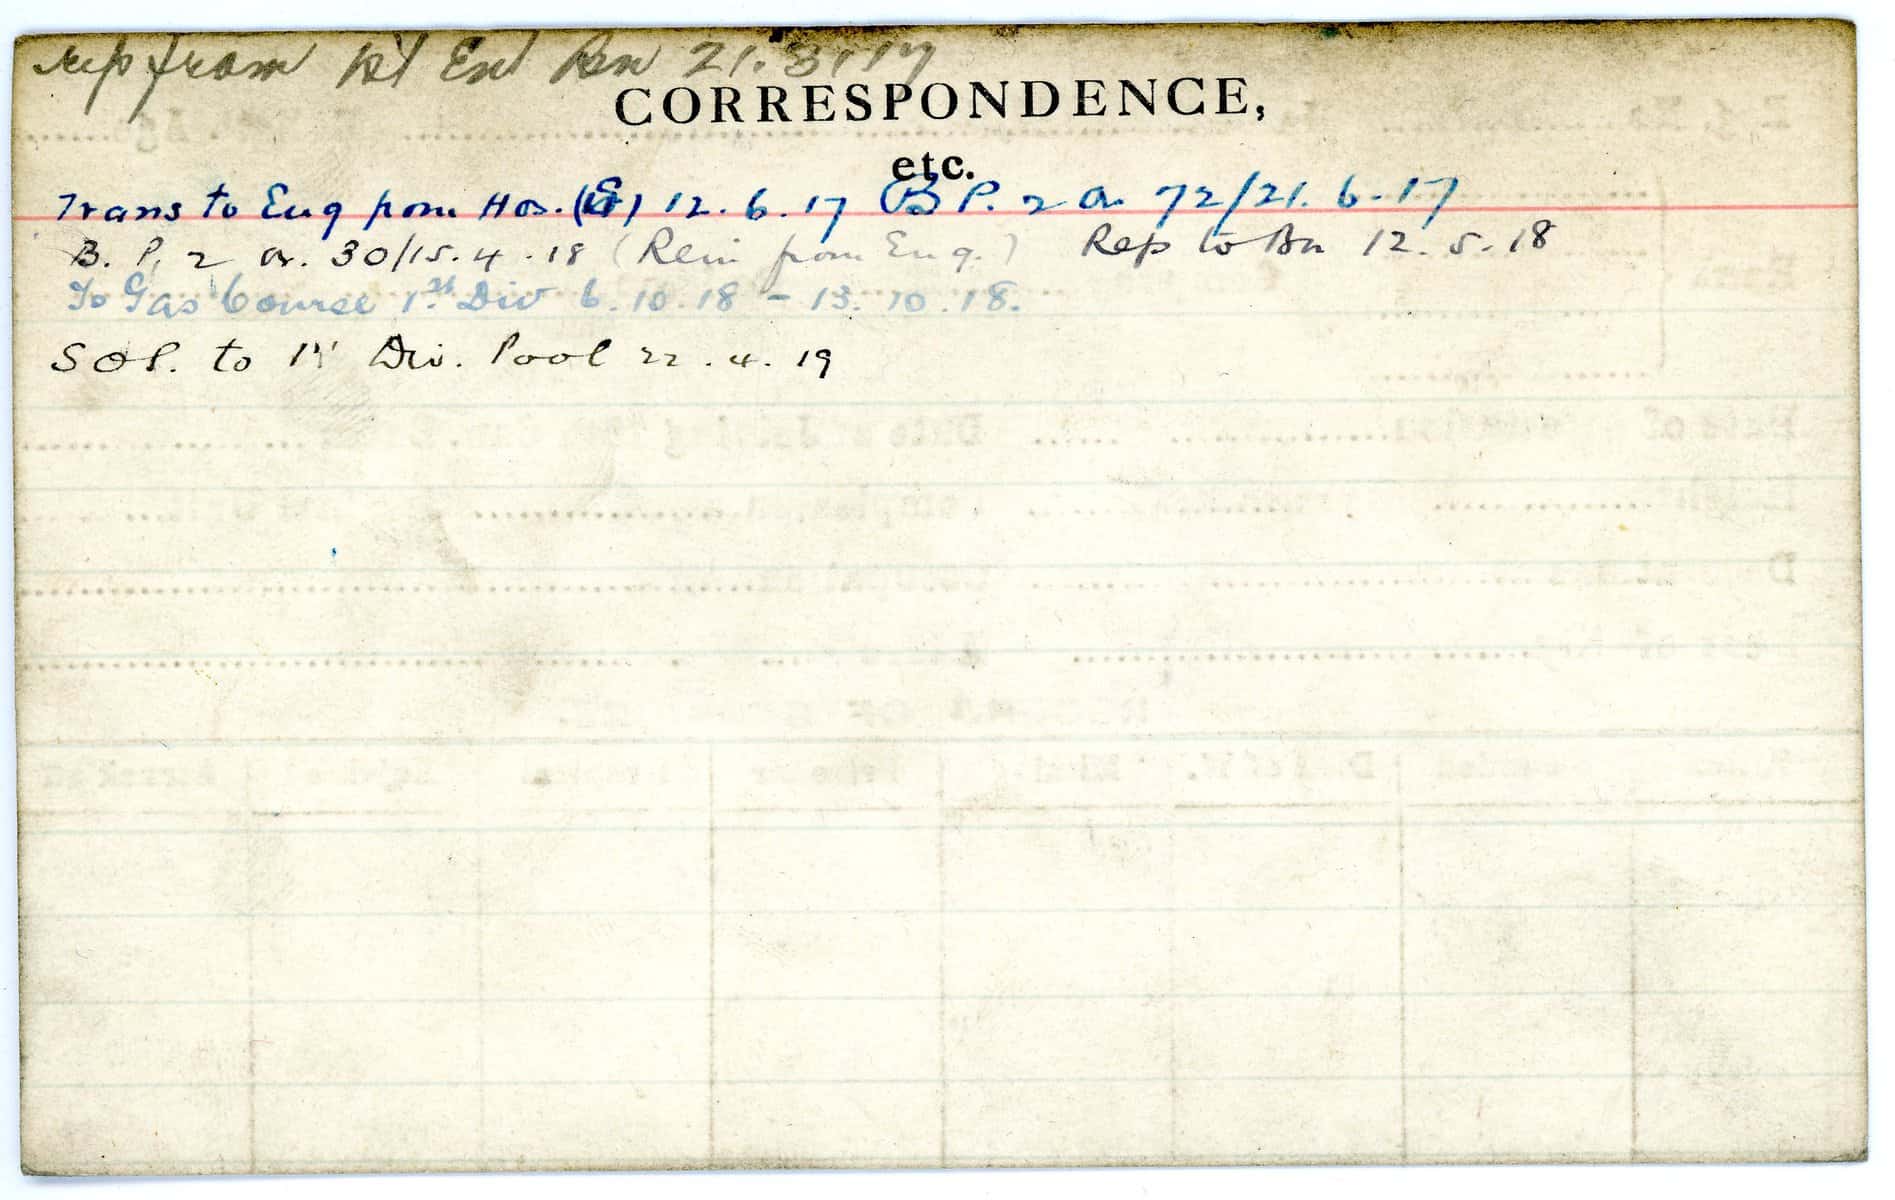 rep from 1st Ent Bn 21.3.17
CORRESPONDENCE,
etc.
Trans to Eng from Hos. 12.6.17 B P. 2 Or 72/21.6.17
B. P. 2 Or. 30/15.4.18 (Rein from Eng.) Rep to Bn 12.5.18
To Gas Course 1st Div 6.10.18 - 13.10.18.
SOS. to 1st Div. Pool 22.4.19